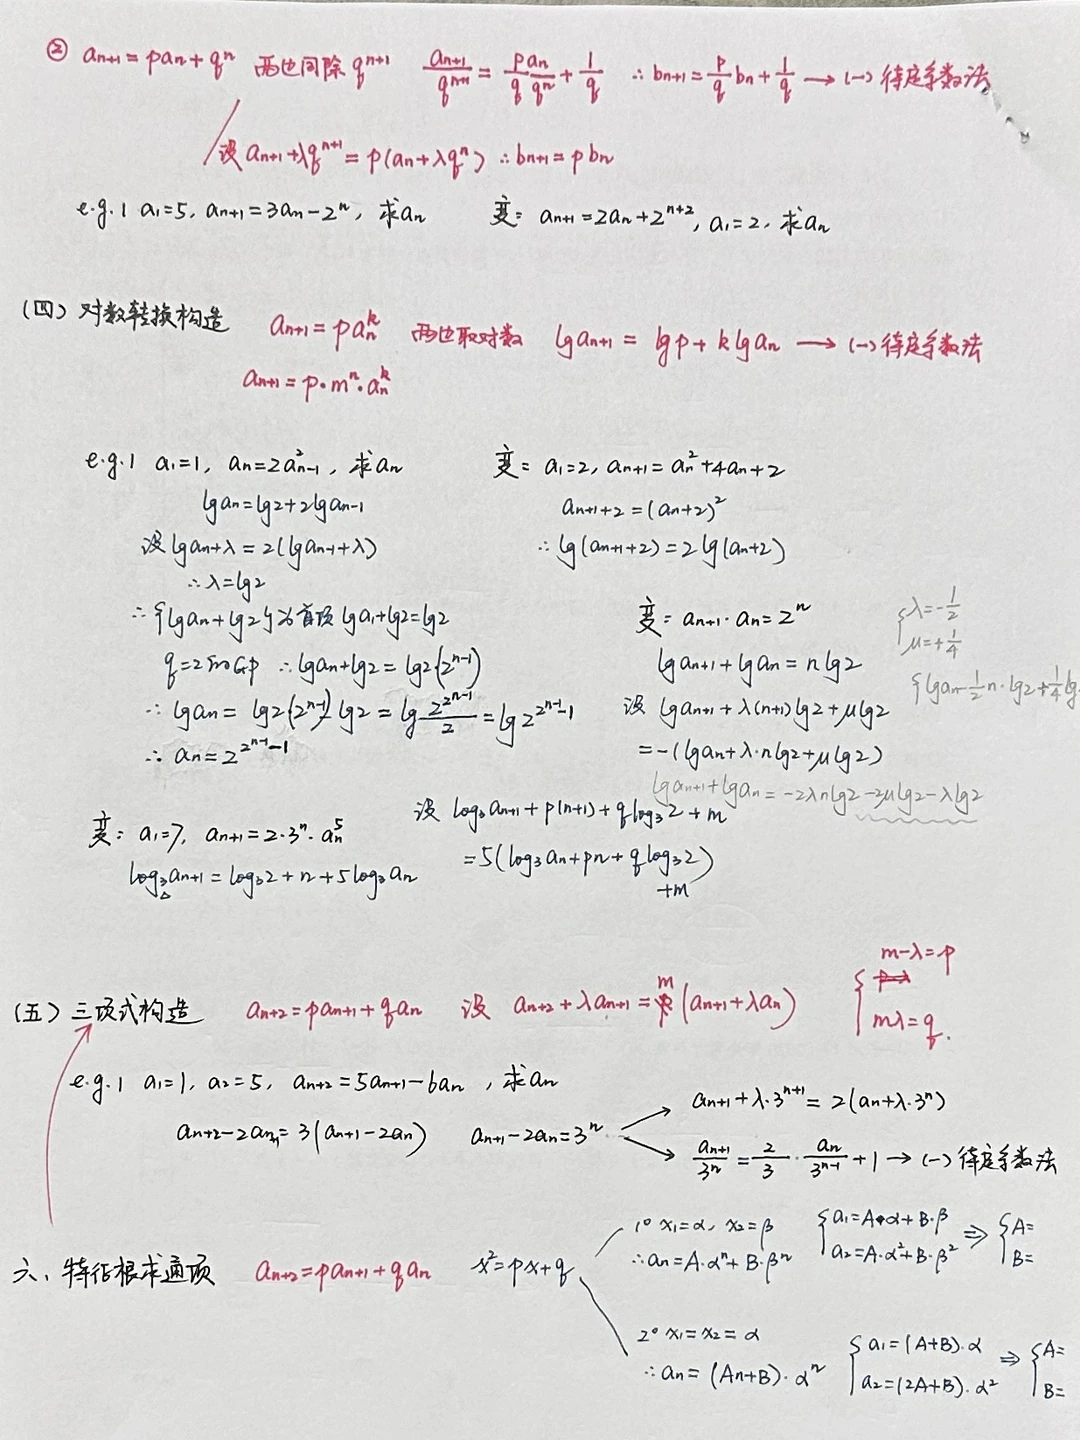 ② aₙ₊₁=paₙ+qⁿ 两边同除qⁿ⁺¹ aₙ₊₁/qⁿ⁺¹=p/q aₙ/qⁿ+1/q ∴bₙ₊₁=p/q bₙ+1/q→(一)待定系数法
设aₙ₊₁+λqⁿ⁺¹=p(aₙ+λqⁿ) ∴bₙ₊₁=pbₙ
e.g.1 a₁=5, aₙ₊₁=3aₙ-2ⁿ, 求aₙ 变: aₙ₊₁=2aₙ+2ⁿ⁺², a₁=2, 求aₙ
(四)对数转换构造 aₙ₊₁=paₙᵏ 两边取对数 lgaₙ₊₁=lgp+klgaₙ→(一)待定系数法
aₙ₊₁=p·mⁿ·aₙᵏ
e.g.1 a₁=1, aₙ=2a²ₙ₋₁, 求aₙ
lgaₙ=lg2+2lgaₙ₋₁
设lgaₙ+λ=2(lgaₙ₋₁+λ)
∴λ=lg2
∴{lgaₙ+lg2}为首项lga₁+lg2=lg2
q=2的G.P ∴lgaₙ+lg2=lg2·(2ⁿ⁻¹)
∴lgaₙ=lg2·(2ⁿ⁻¹)-lg2=lg 2^(2ⁿ⁻¹)/2=lg2^(2ⁿ⁻¹-1)
∴aₙ=2^(2ⁿ⁻¹-1)
变: a₁=2, aₙ₊₁=aₙ²+4aₙ+2
aₙ₊₁+2=(aₙ+2)²
∴lg(aₙ₊₁+2)=2lg(aₙ+2)
变: aₙ₊₁·aₙ=2ⁿ
lgaₙ₊₁+lgaₙ=nlg2
设lgaₙ₊₁+λ(n+1)lg2+μlg2
=-(lgaₙ+λ·nlg2+μlg2)
lgaₙ₊₁+lgaₙ=-2λnlg2-2μlg2-λlg2
{λ=-1/2
μ=+1/4
{lgaₙ-1/2n·lg2+1/4lg
变: a₁=7, aₙ₊₁=2·3ⁿ·aₙ⁵
log₃aₙ₊₁=log₃2+n+5log₃aₙ
设log₃aₙ₊₁+p(n+1)+qlog₃2+m
=5(log₃aₙ+pn+qlog₃2)
+m
(五)三项式构造 aₙ₊₂=paₙ₊₁+qaₙ 设aₙ₊₂+λaₙ₊₁=m(aₙ₊₁+λaₙ)
{m-λ=p
mλ=q.
e.g.1 a₁=1, a₂=5, aₙ₊₂=5aₙ₊₁-6aₙ, 求aₙ
aₙ₊₂-2aₙ₊₁=3(aₙ₊₁-2aₙ) aₙ₊₁-2aₙ=3ⁿ
aₙ₊₁+λ·3ⁿ⁺¹=2(aₙ+λ·3ⁿ)
aₙ₊₁/3ⁿ=2/3·aₙ/3ⁿ⁻¹+1→(一)待定系数法
六、特征根求通项 aₙ₊₂=paₙ₊₁+qaₙ x²=px+q
1° x₁=α, x₂=β {a₁=A·α+B·β ⇒ {A=
∴aₙ=A·αⁿ+B·βⁿ a₂=A·α²+B·β² B=
2° x₁=x₂=α {a₁=(A+B)·α ⇒ {A=
∴aₙ=(An+B)·αⁿ a₂=(2A+B)·α² B=